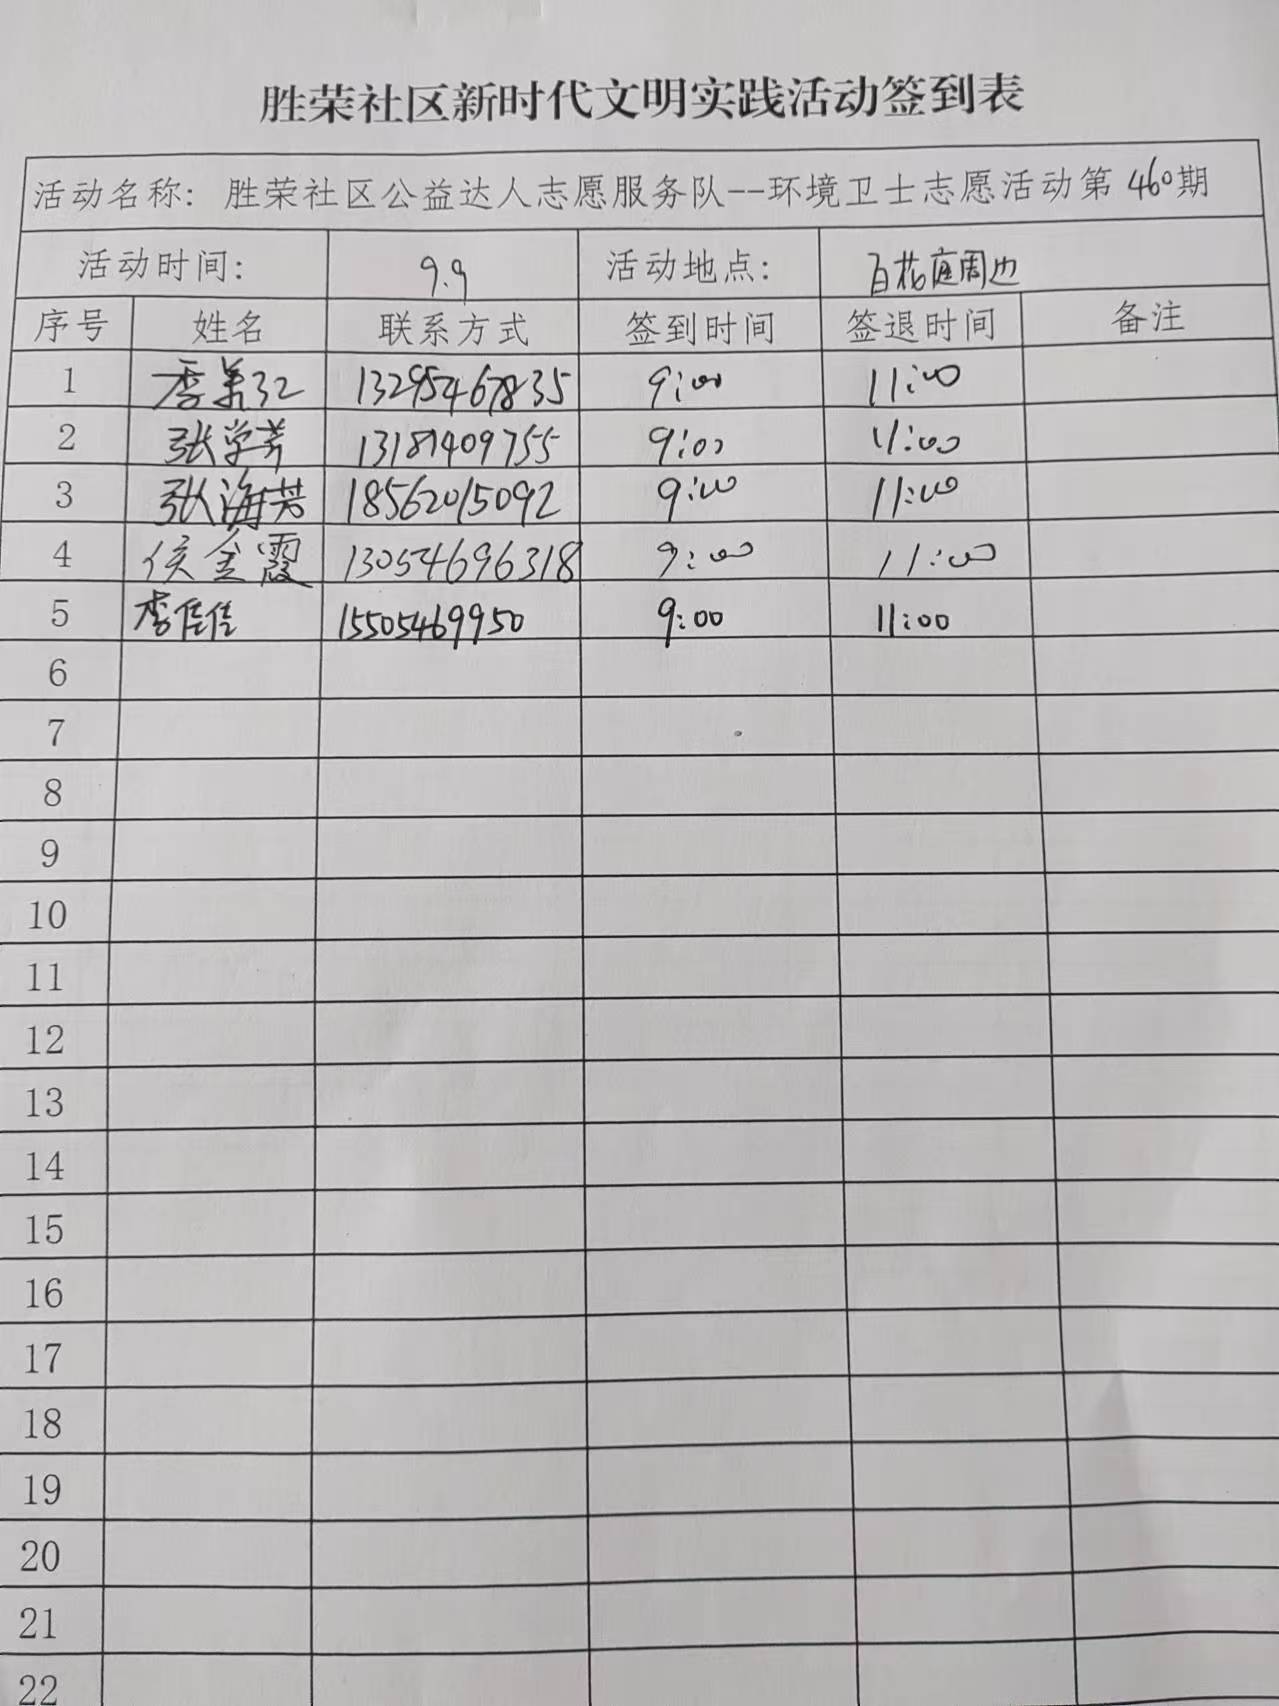 胜荣社区新时代文明实践活动签到表
活动名称: 胜荣社区公益达人志愿服务队--环境卫士志愿活动第460期
活动时间: 9.9 活动地点: 百花庭周边
序号 姓名 联系方式 签到时间 签退时间 备注
1 13295467835 9:00 11:00
2 张学芳 13181409755 9:00 11:00
3 张海芳 18562015092 9:00 11:00
4 侯金霞 13054696318 9:00 11:00
5 李佳佳 15505469950 9:00 11:00
6
7
8
9
10
11
12
13
14
15
16
17
18
19
20
21
22